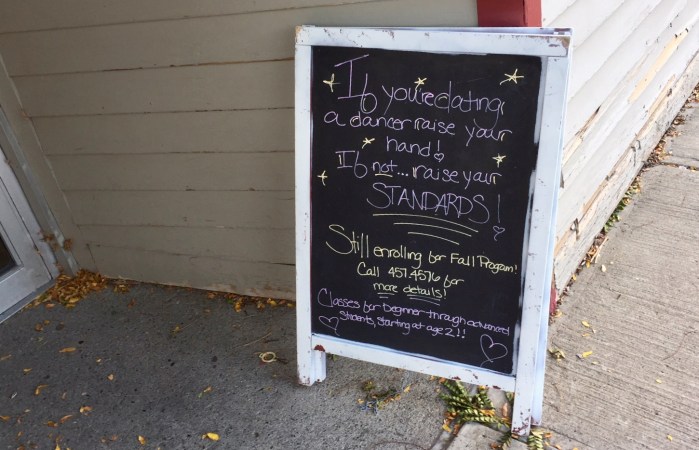 If you're dating
a dancer raise your
hand!
If not... raise your
STANDARDS!
Still enrolling for Fall Program!
Call 457.4576 for
more details!
Classes for beginner through advanced
students, starting at age 2!!